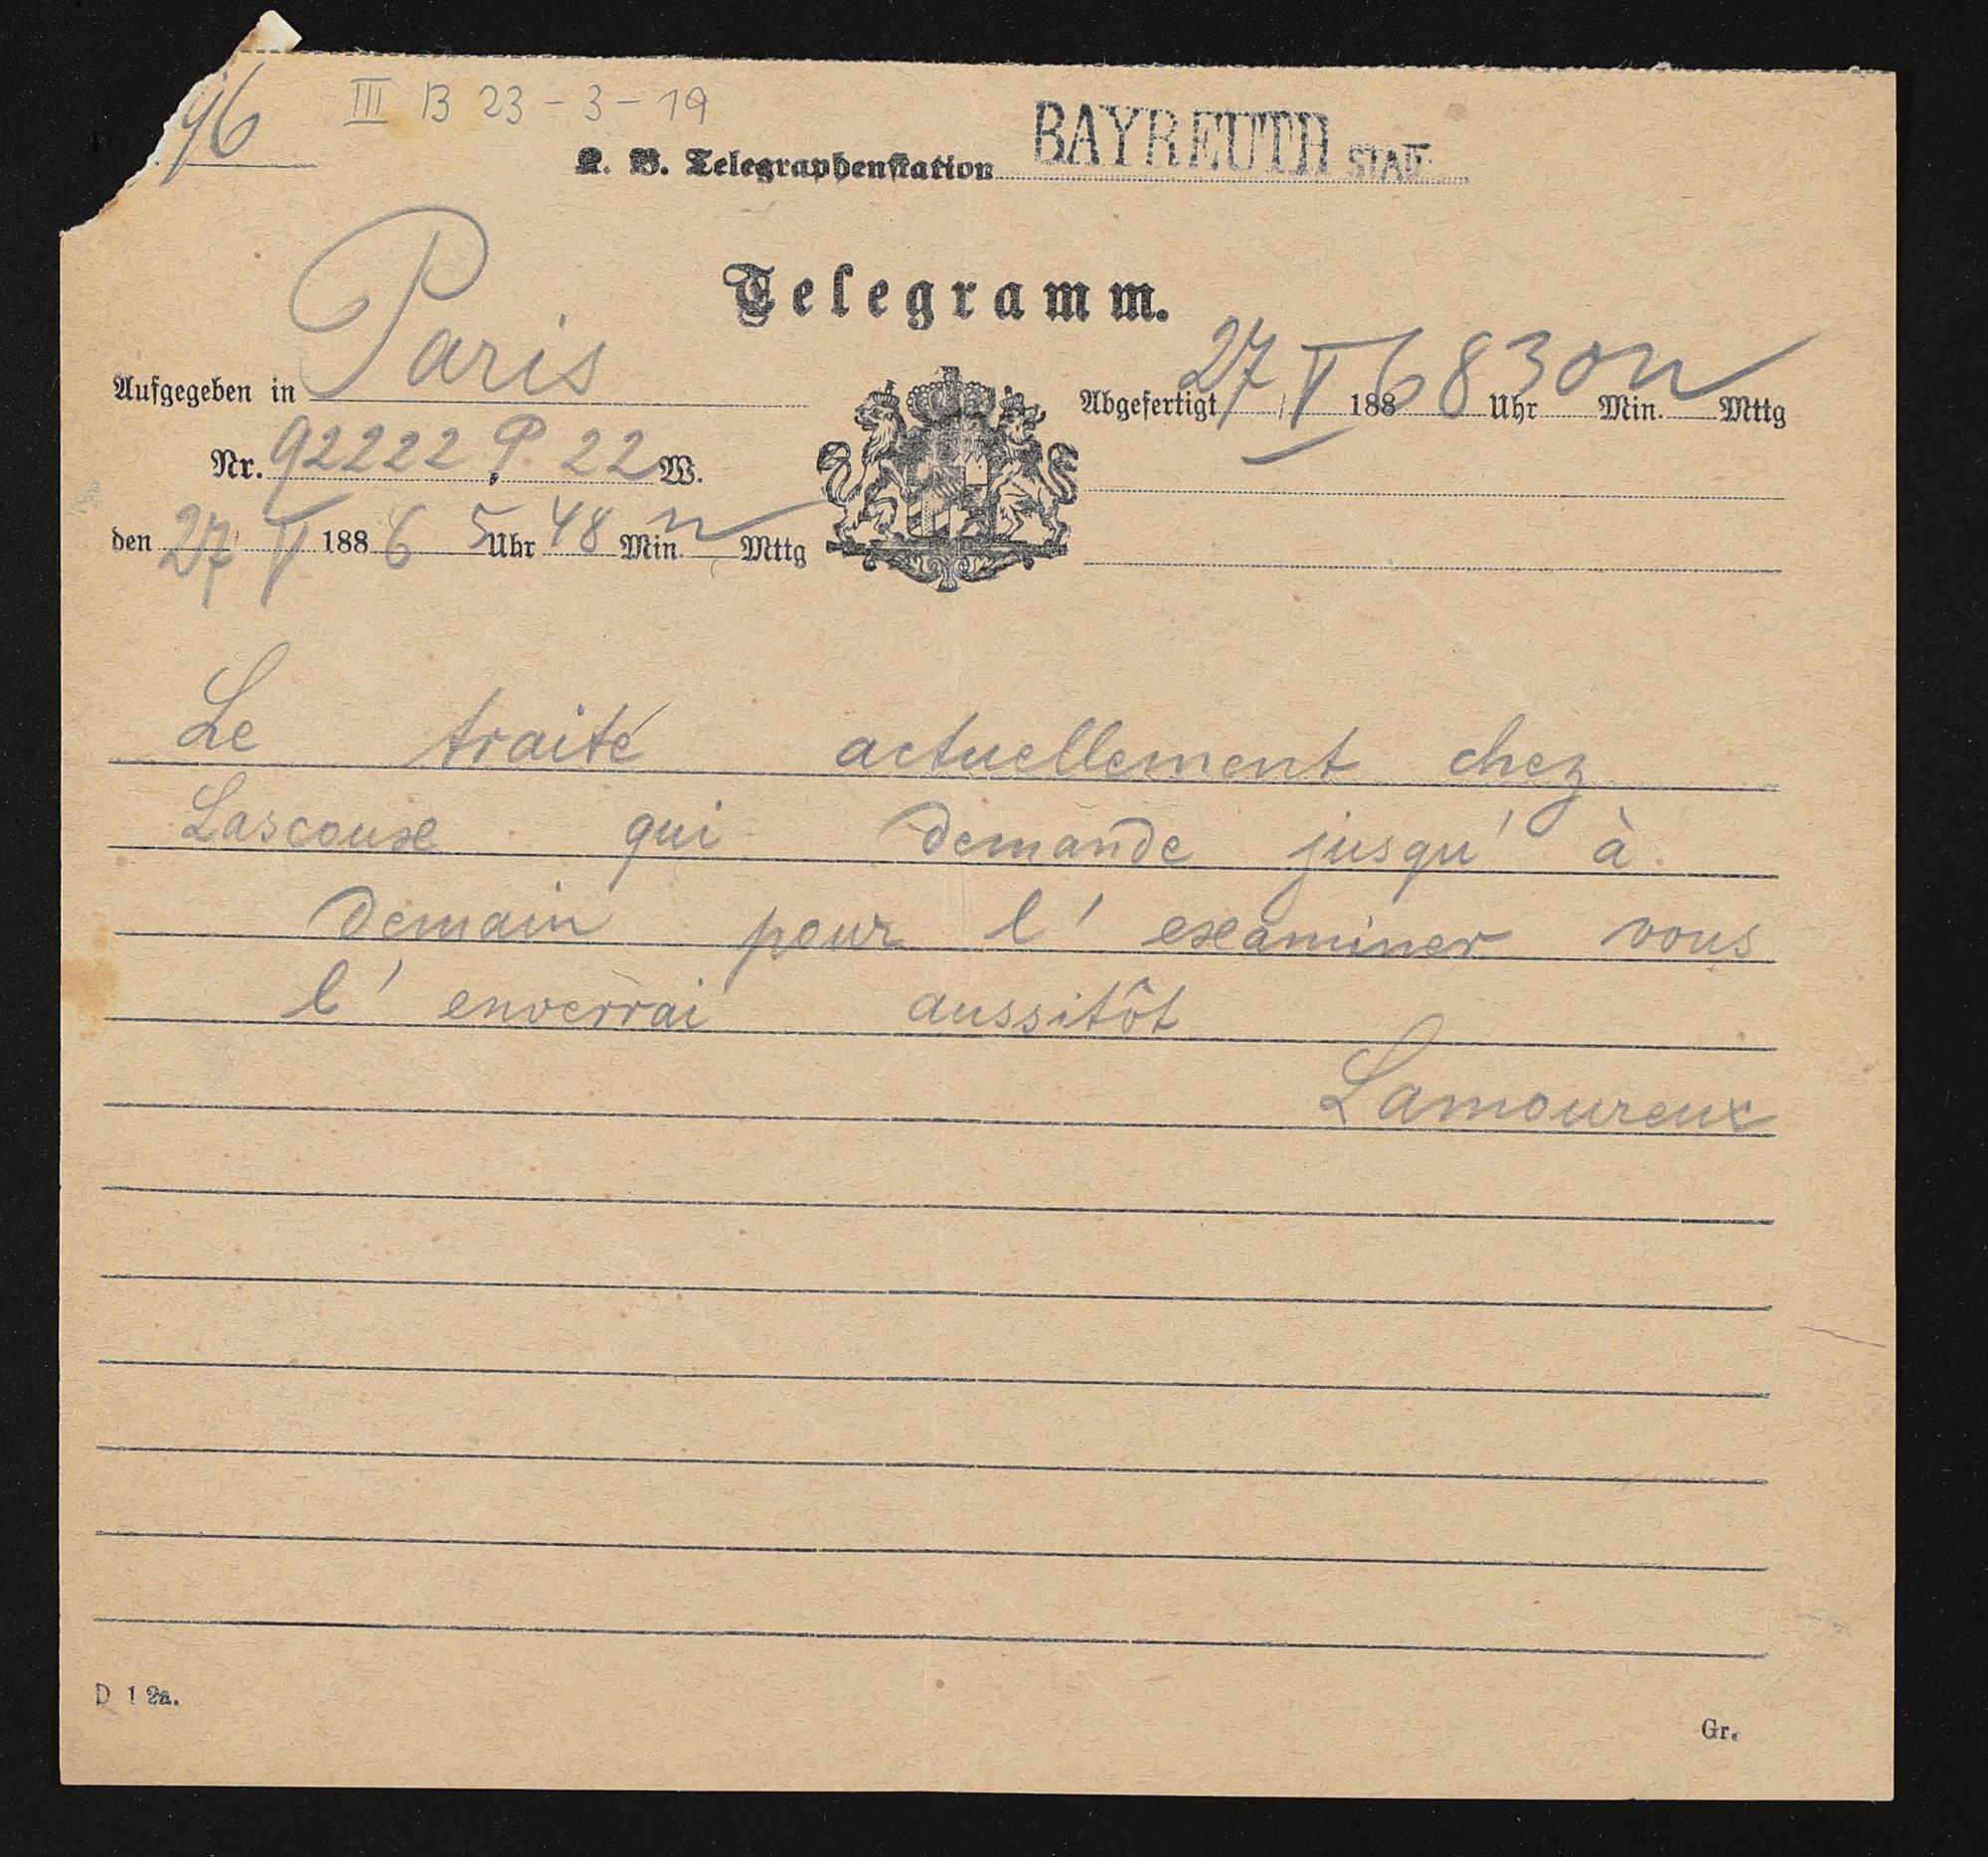 96 III B 23-3-19
K. B. Telegraphenstation BAYREUTH STADT
Telegramm.
Aufgegeben in Paris
Abgefertigt 27 V 1886 8 Uhr 30 Min. n Mttg
Nr. 92222 P 22 W.
den 27 V 1886 5 Uhr 48 Min n Mttg
Le traité actuellement chez
Lascouxe qui demande jusqu' à
demain pour l' examiner vous
l' enverrai aussitôt
Lamoureux
D 1 2a.
Gr.